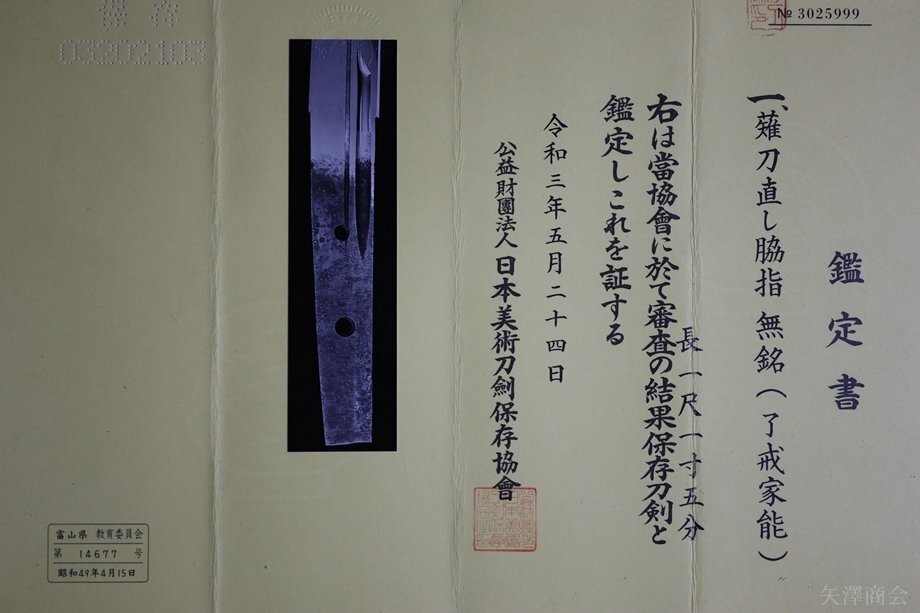 № 3025999
鑑定書
一、薙刀直し脇指 無銘(了戒家能)
長一尺一寸五分
右は當協會に於て審査の結果保存刀剣と
鑑定しこれを証する
令和三年五月二十四日
公益財團法人 日本美術刀劍保存協會
保存
03202103
富山県 教育委員会
第 14677 号
昭和49年4月15日
矢澤商会